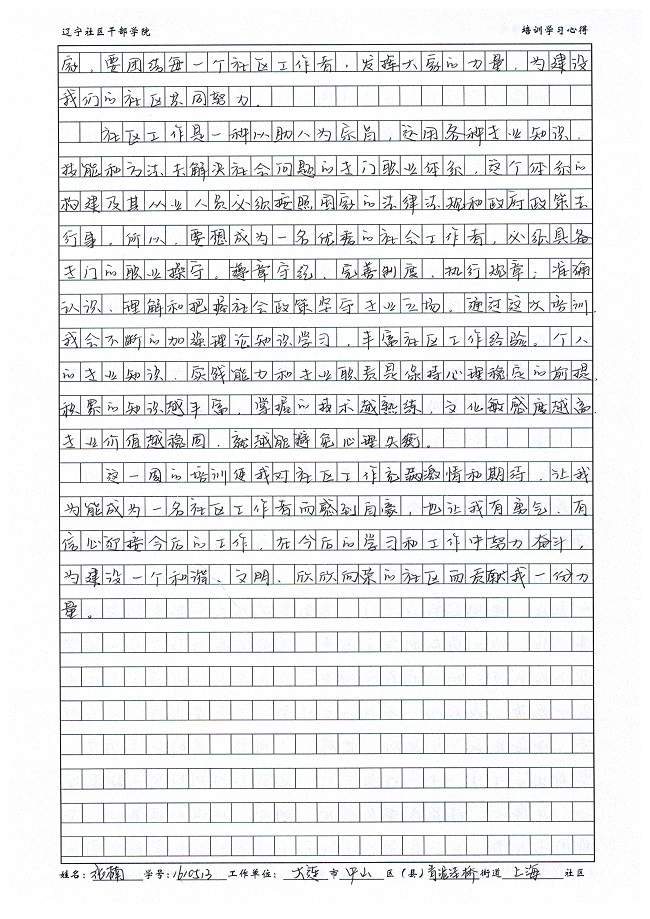 辽宁社区干部学院 培训学习心得
家，要团结每一个社区工作者，发挥大家的力量，为建设
我们的社区共同努力。
社区工作是一种以助人为宗旨，运用各种专业知识、
技能和方法去解决社会问题的专门职业体系，这个体系的
构建及其从业人员必须按照国家的法律法规和政府政策去
行事。所以，要想成为一名优秀的社会工作者，必须具备
专门的职业操守，遵章守纪、完善制度、执行规章；准确
认识、理解和把握社会政策坚守专业立场。通过这次培训，
我会不断的加强理论知识学习，丰富社区工作经验。个人
的专业知识、实践能力和专业职责是保持心理稳定的前提，
积累的知识越丰富，掌握的技术越熟练，文化敏感度越高，
专业价值越稳固，就越能避免心理失衡。
这一周的培训使我对社区工作充满激情和期待，让我
为能成为一名社区工作者而感到自豪，也让我有勇气、有
信心迎接今后的工作，在今后的学习和工作中努力奋斗，
为建设一个和谐、文明、欣欣向荣的社区而贡献我一份力
量。
姓名：张楠 学号：1610513 工作单位：大连市中山区（县）青泥洼桥街道上海社区